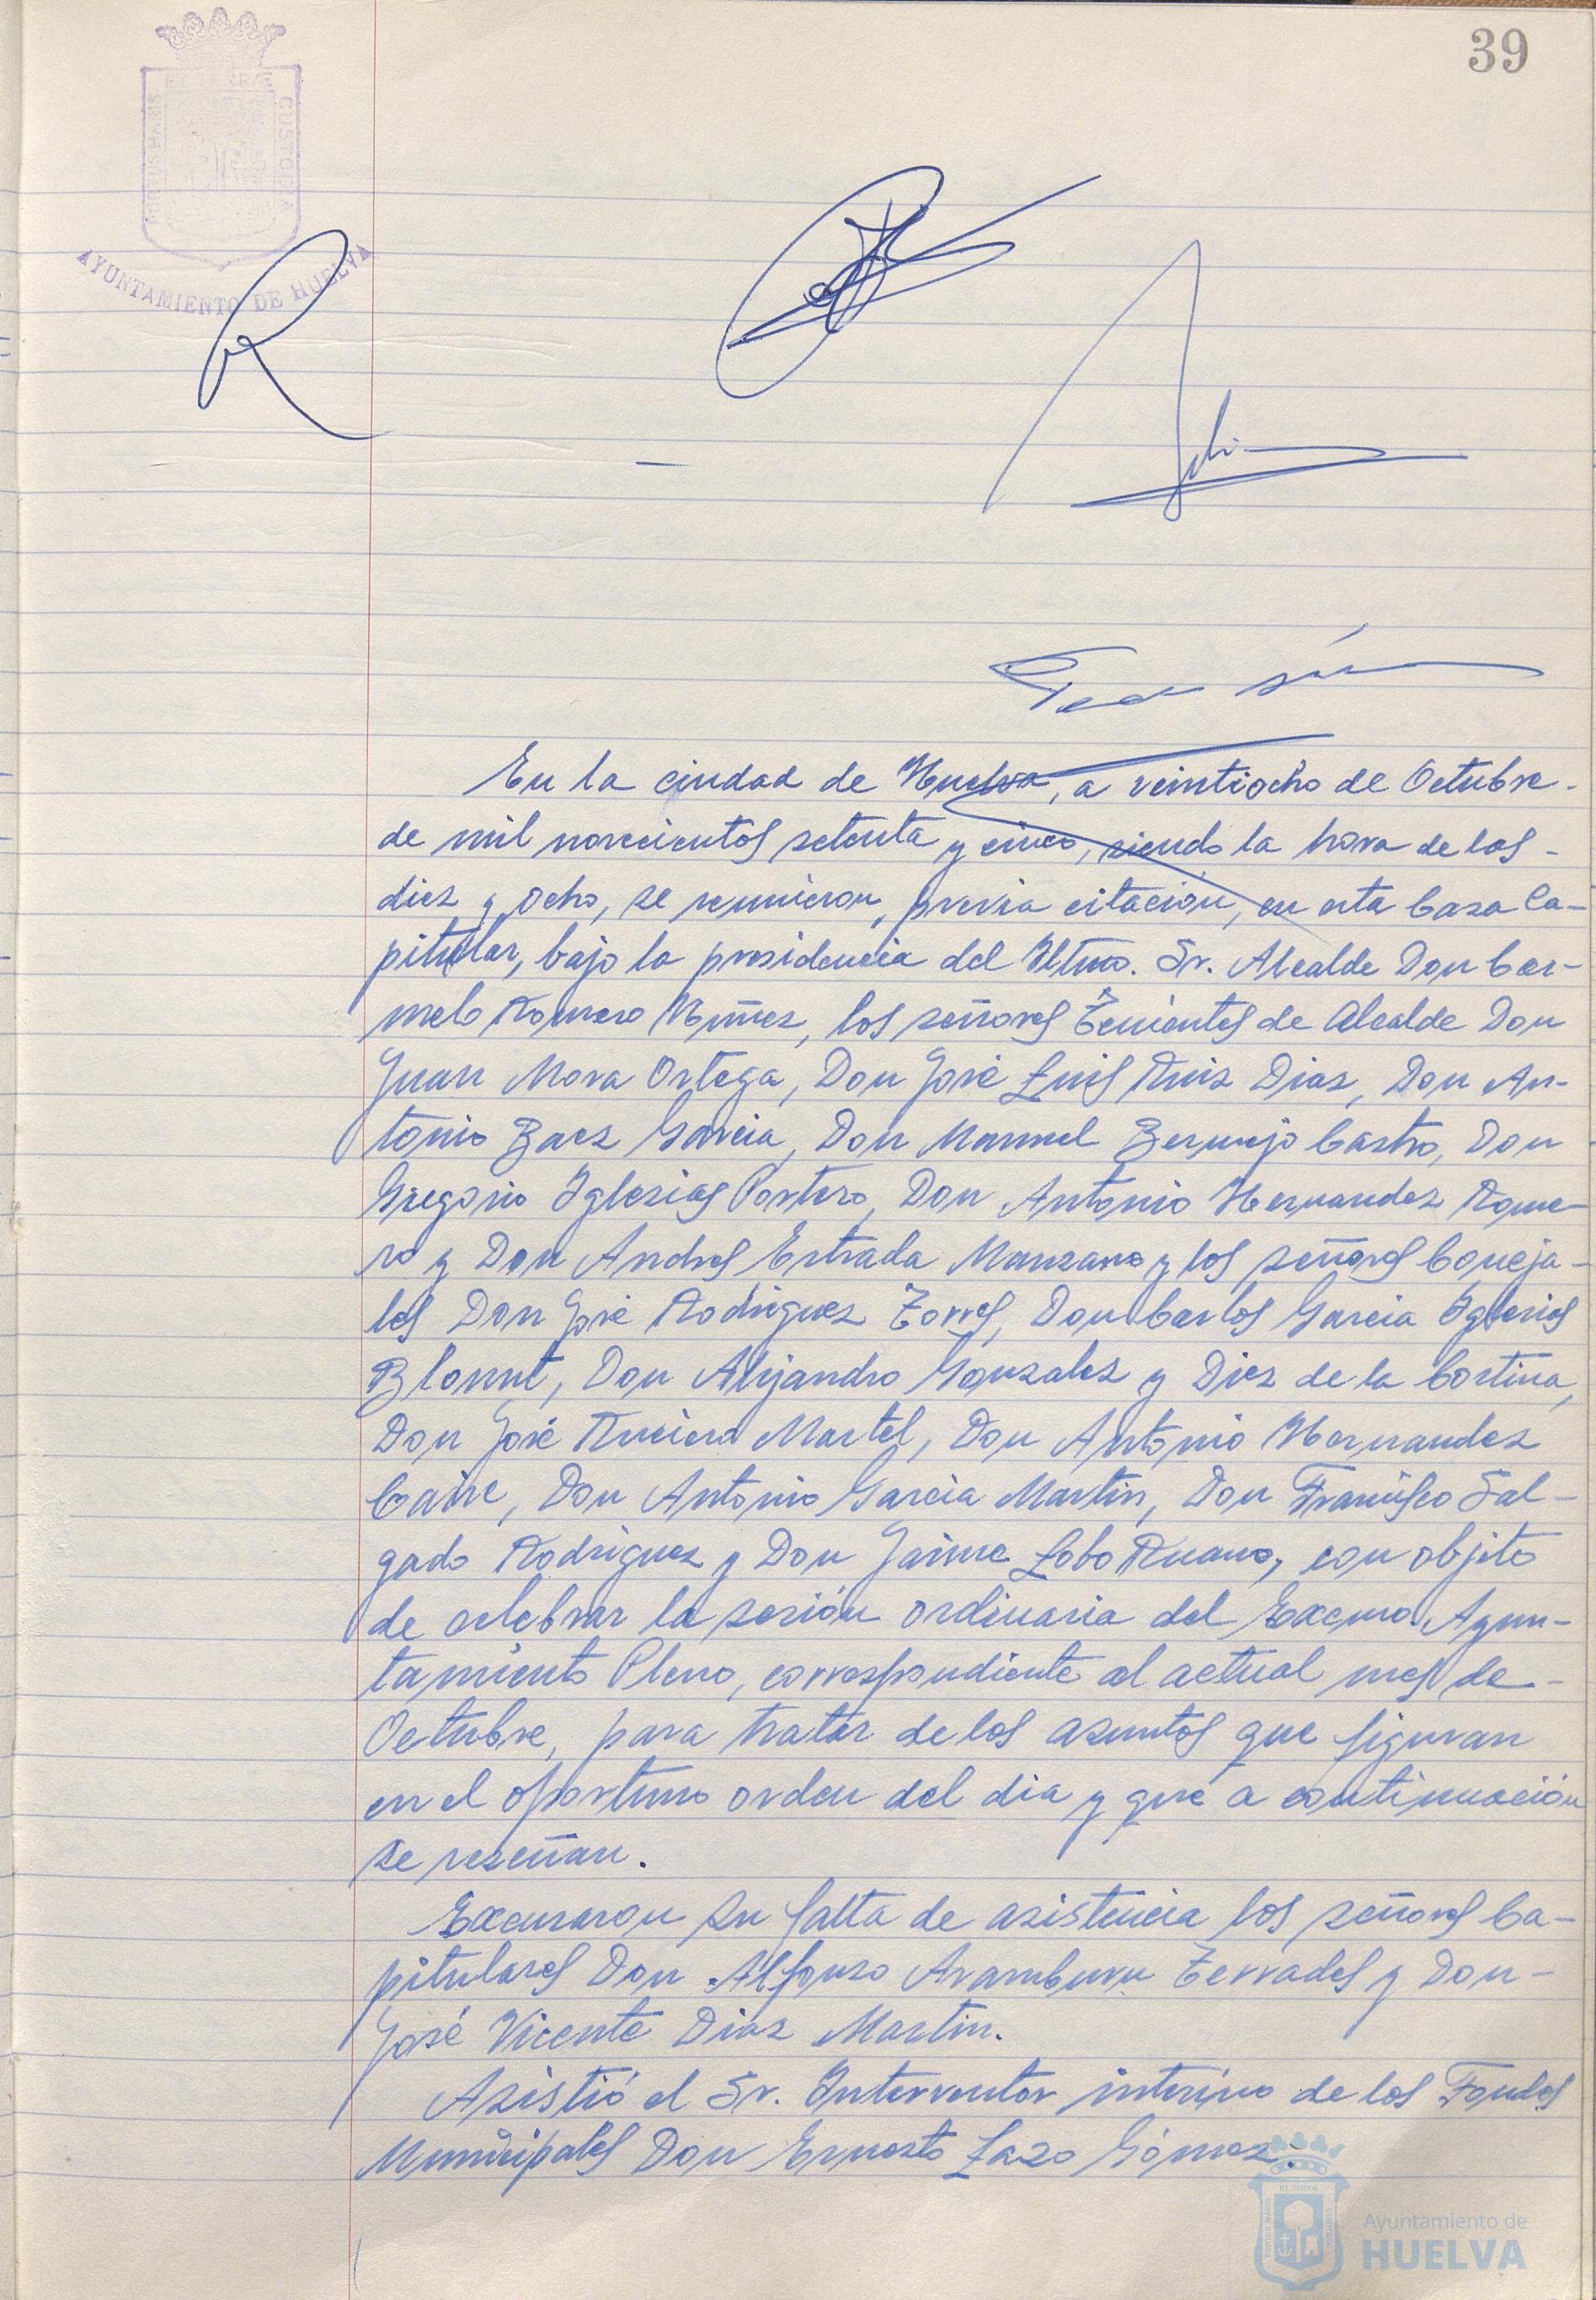 39
PORTUS MARIS ET TERRÆ CUSTODIA
AYUNTAMIENTO DE HUELVA
En la ciudad de Huelva, a veintiocho de Octubre-
de mil novecientos setenta y cinco, siendo la hora de las-
diez y ocho, se reunieron, previa citación, en esta Casa Ca-
pitular, bajo la presidencia del Iltmo. Sr. Alcalde Don Car-
melo Romero Nuñez, los señores Tenientes de Alcalde Don
Juan Mora Ortega, Don José Luis Ruiz Diaz, Don An-
tonio Baez Garcia, Don Manuel Bermejo Castro, Don
Gregorio Iglesias Portero, Don Antonio Hernandez Rome-
ro y Don Andres Estrada Manzano y los señores Conceja-
les Don José Rodriguez Torres, Don Carlos Garcia Iglesias
Don Alejandro Gonzalez y Diez de la Cortina,
Don José Martel, Don Antonio Hernandez
Don Antonio Garcia Martin, Don Francisco Sal-
gado Rodriguez y Don Jaime Lobo Ruano, con objeto
de celebrar la sesión ordinaria del Excmo. Ayun-
tamiento Pleno, correspondiente al actual mes de-
Octubre, para tratar de los asuntos que figuran
en el oportuno orden del dia y que a continuación
se reseñan.
Excusaron su falta de asistencia los señores Ca-
pitulares Don Alfonso Aramburu Terrades y Don-
José Vicente Diaz Martin.
Asistió el Sr. Interventor interino de los Fondos
Municipales Don Ernesto Lazo Gómez.
Ayuntamiento de
HUELVA